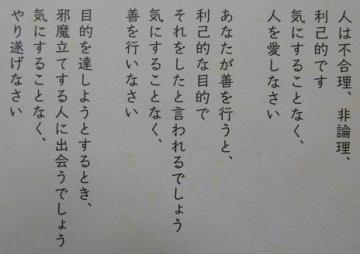 人は不合理、非論理、
利己的です
気にすることなく、
人を愛しなさい
あなたが善を行うと、
利己的な目的で
それをしたと言われるでしょう
気にすることなく、
善を行いなさい
目的を達しようとするとき、
邪魔立てする人に出会うでしょう
気にすることなく、
やり遂げなさい